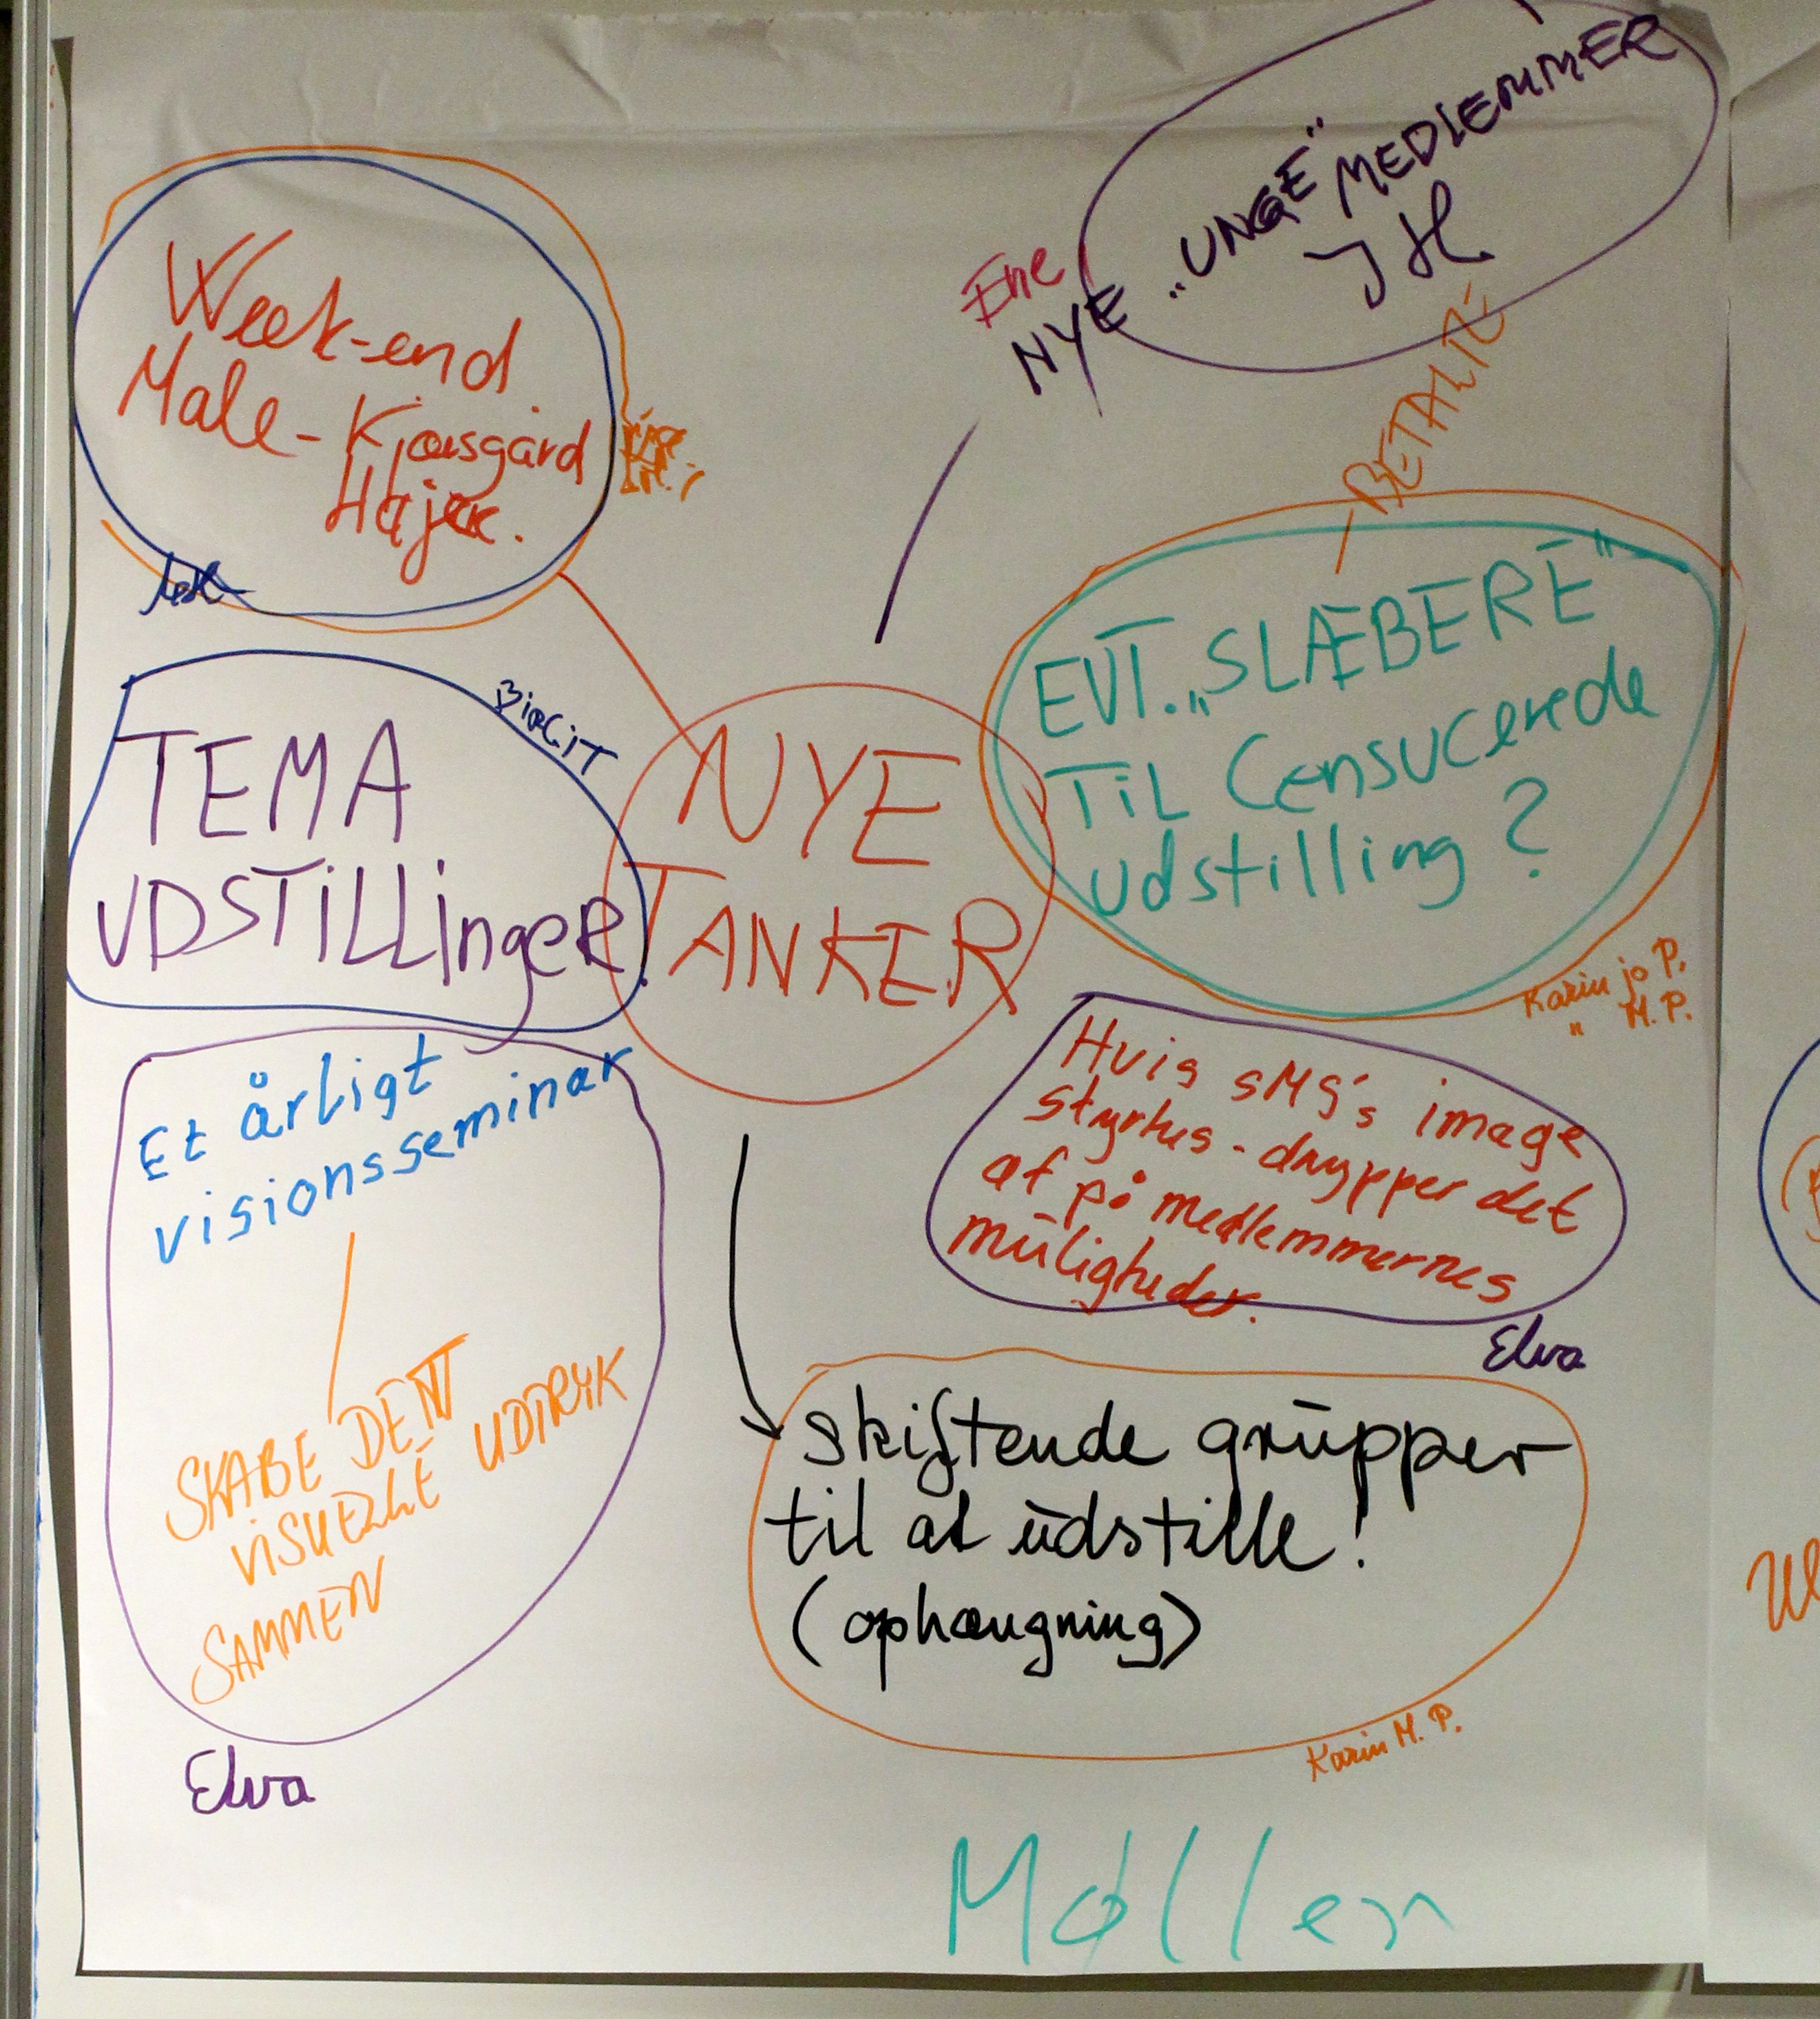 NYE „UNGE" MEDLEMMER
JH
Week-end
Male-Kjæsgård
BETALTE
EVT. „SLÆBERE"
TIL Censucerede
udstilling ?
Karin jo P.
" M. P.
BirGiT
TEMA
UDSTILLinger
NYE
TANKER
Et årligt
visionsseminar
SKABE DET
VISUELLE UDTRYK
SAMMEN
Elva
Hvis SMS's image
styrkes - drypper det
af på medlemmernes
muligheder.
Elva
skiftende grupper
til at udstille!
(ophængning)
Karin M. P.
Møller